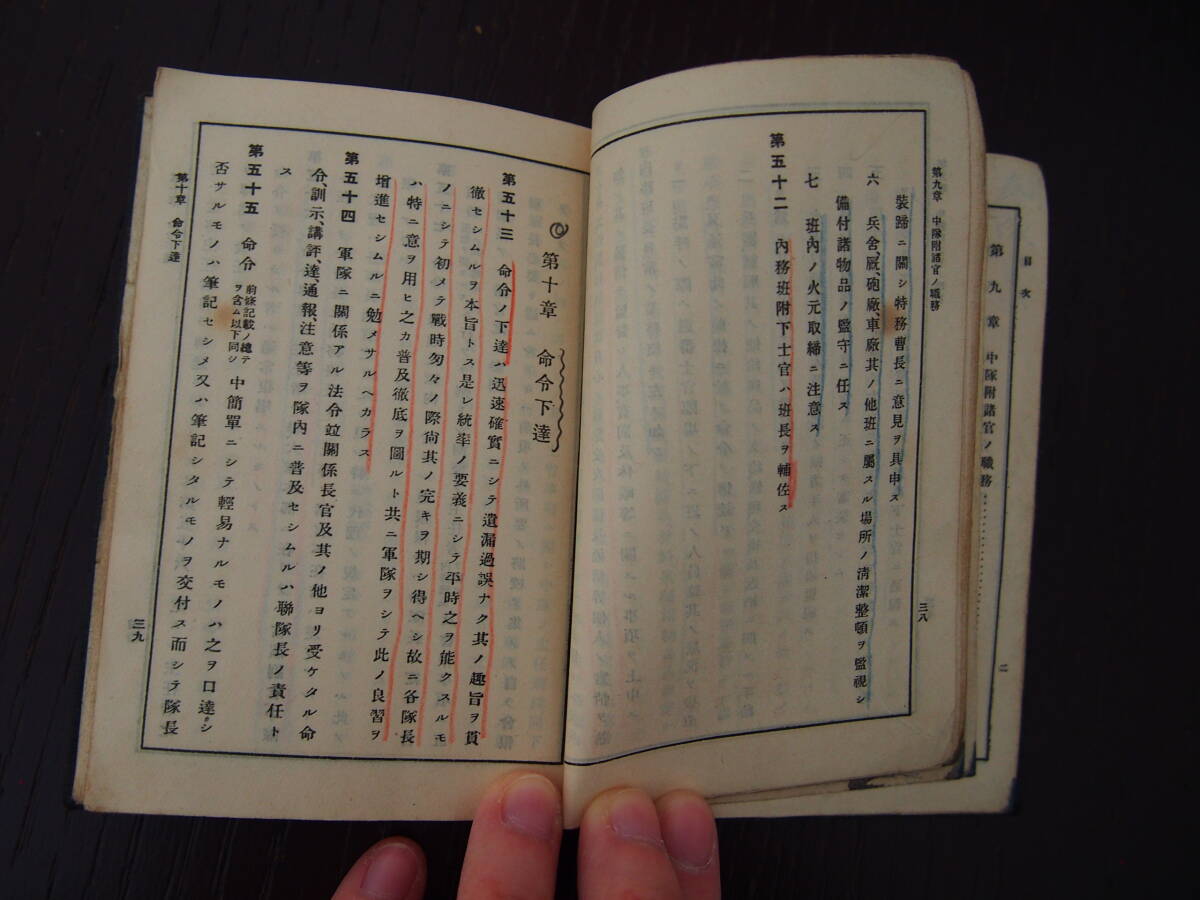 目次
第九章 中隊附諸官ノ職務
二
第九章 中隊附諸官ノ職務
三八
裝蹄ニ關シ特務曹長ニ意見ヲ具申ス
六 兵舍、厩、砲廠、車廠其ノ他班ニ屬スル場所ノ淸潔整頓ヲ監視シ
備付諸物品ノ監守ニ任ス
七 班內ノ火元取締ニ注意ス
第五十二 內務班附下士官ハ班長ヲ輔佐ス
第十章 命令下達
第五十三 命令ノ下達ハ迅速確實ニシテ遺漏過誤ナク其ノ趣旨ヲ貫
徹セシムルヲ本旨トス是レ統率ノ要義ニシテ平時之ヲ能クスルモ
ノニシテ初メテ戰時匆々ノ際尙其ノ完キヲ期シ得ヘシ故ニ各隊長
ハ特ニ意ヲ用ヒ之カ普及徹底ヲ圖ルト共ニ軍隊ヲシテ此ノ良習ヲ
增進セシムルニ勉メサルヘカラス
第五十四 軍隊ニ關係アル法令竝關係長官及其ノ他ヨリ受ケタル命
令、訓示、講評、達、通報、注意等ヲ隊內ニ普及セシムルハ聯隊長ノ責任ト
ス
第五十五 命令 前條記載ノ總テヲ含ム以下同シ 中簡單ニシテ輕易ナルモノハ之ヲ口達シ
否サルモノハ筆記セシメ又ハ筆記シタルモノヲ交付ス而シテ隊長
第十章 命令下達
三九